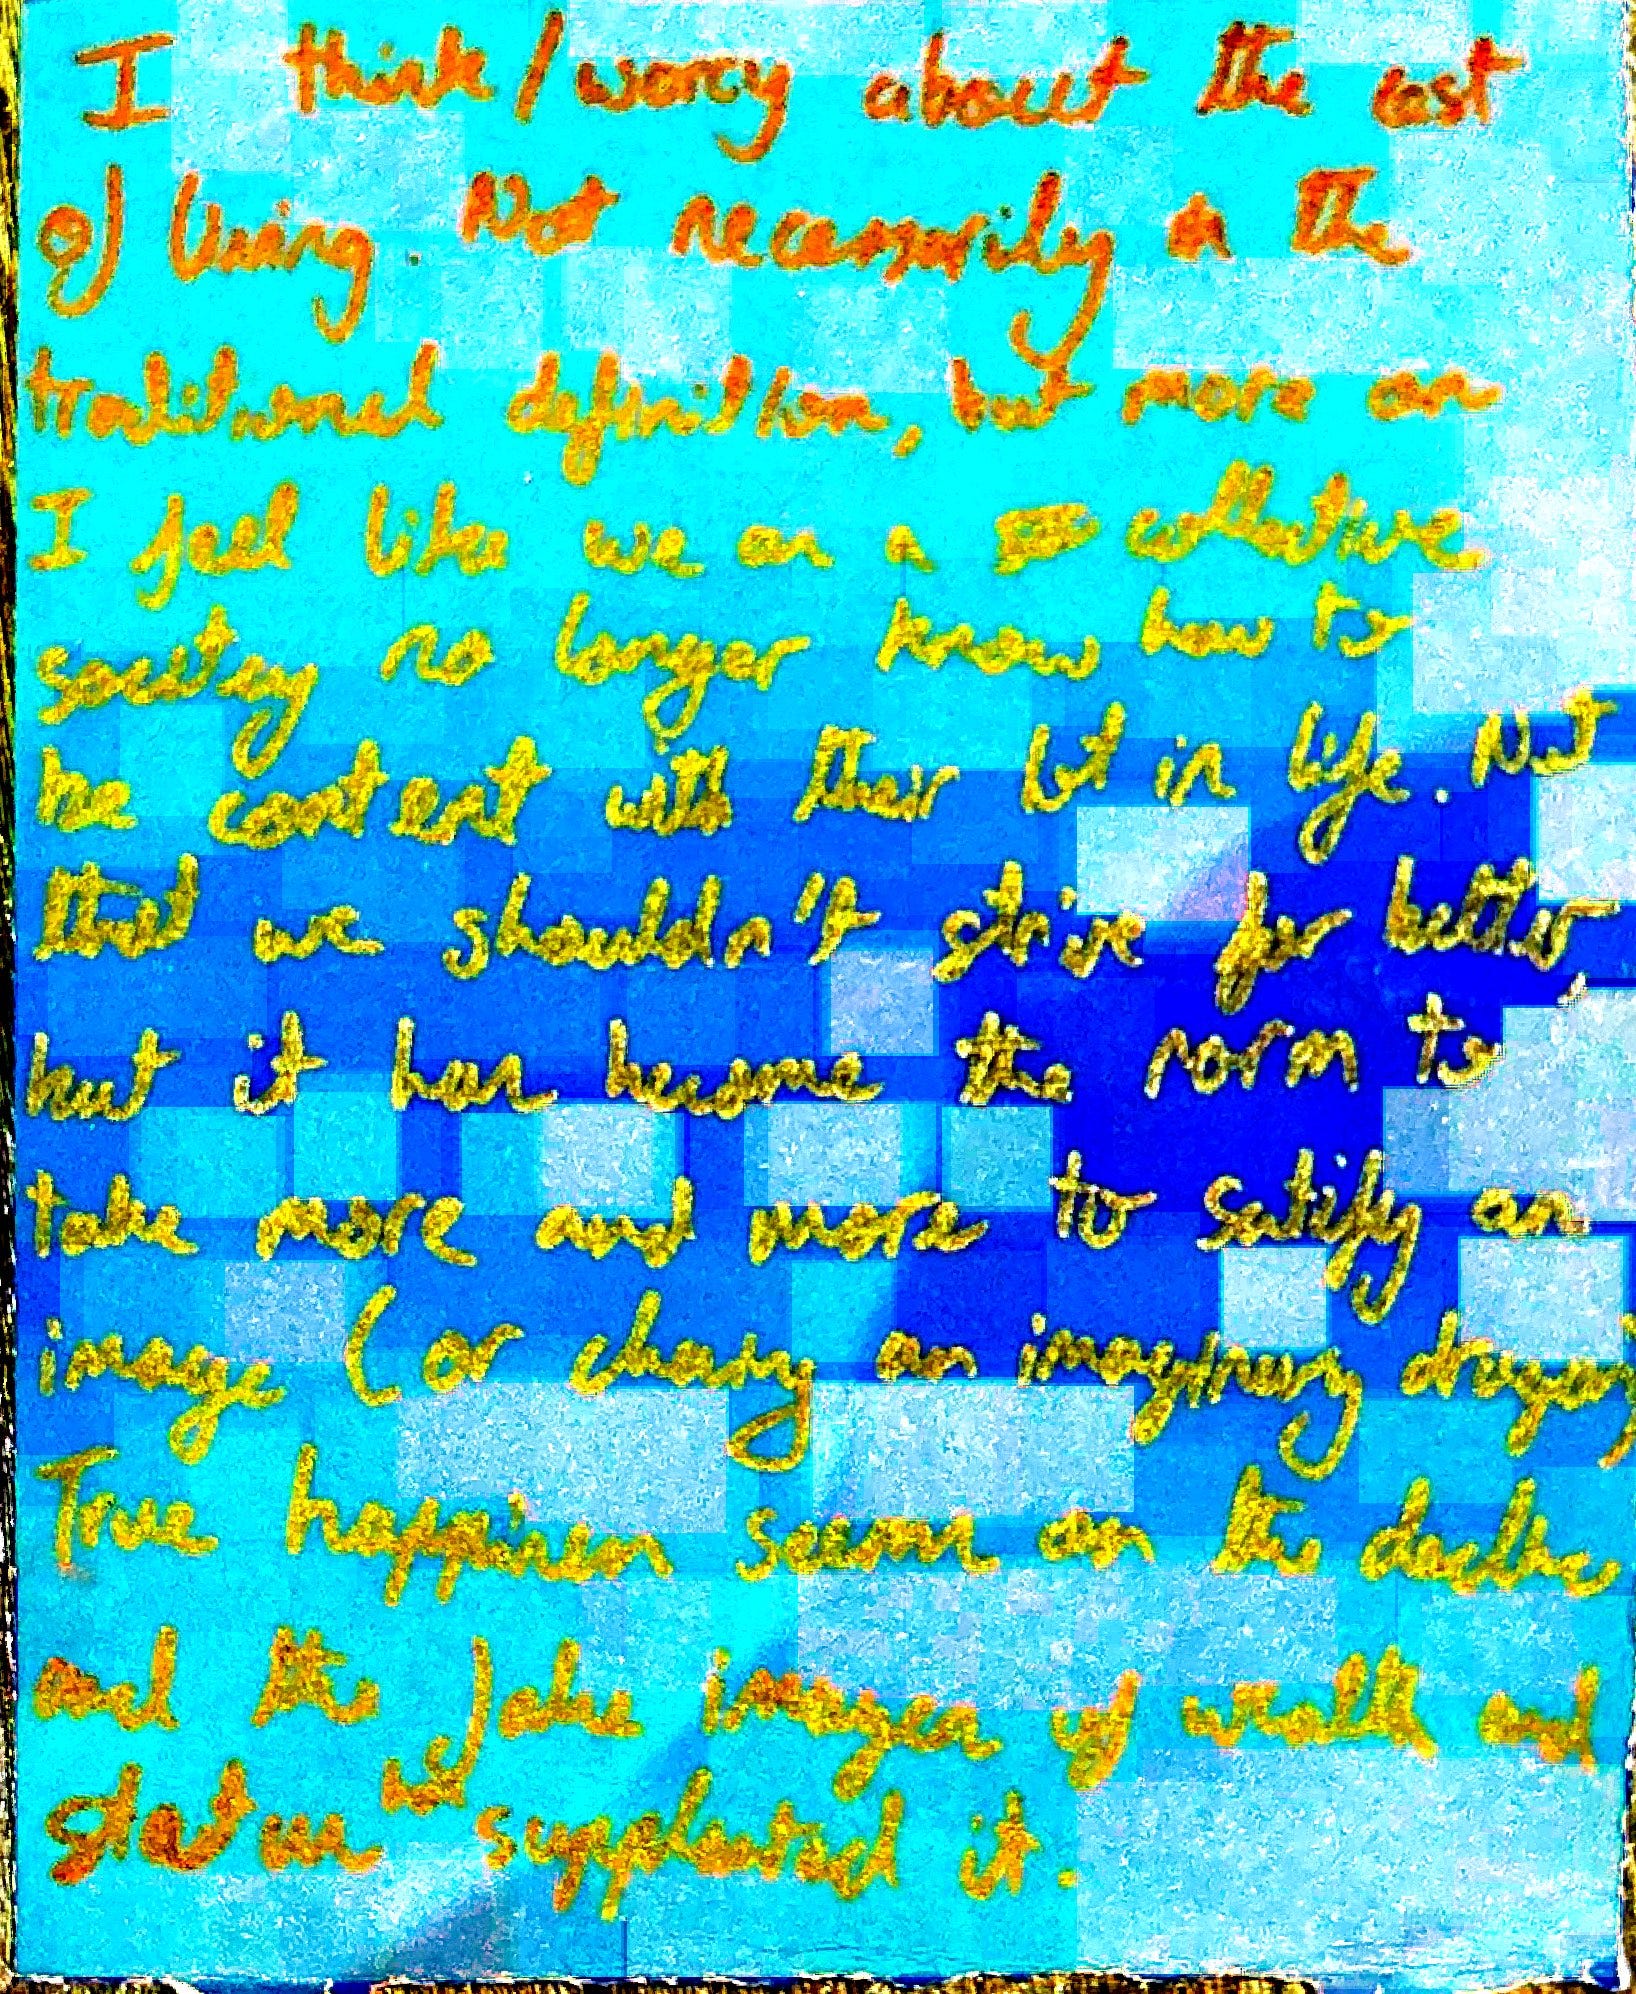 I think/worry about the cost
of living. Not necessarily in the
traditional definition, but more on
I feel like we as a collective
society no longer know how to
be content with their lot in life. Not
that we shouldn't strive for better,
but it has become the norm to
take more and more to satify an
image (or chasing an imaginery dragon)
True happiness seems on the decline
and the fake images of wealth and
status we supplanted it.